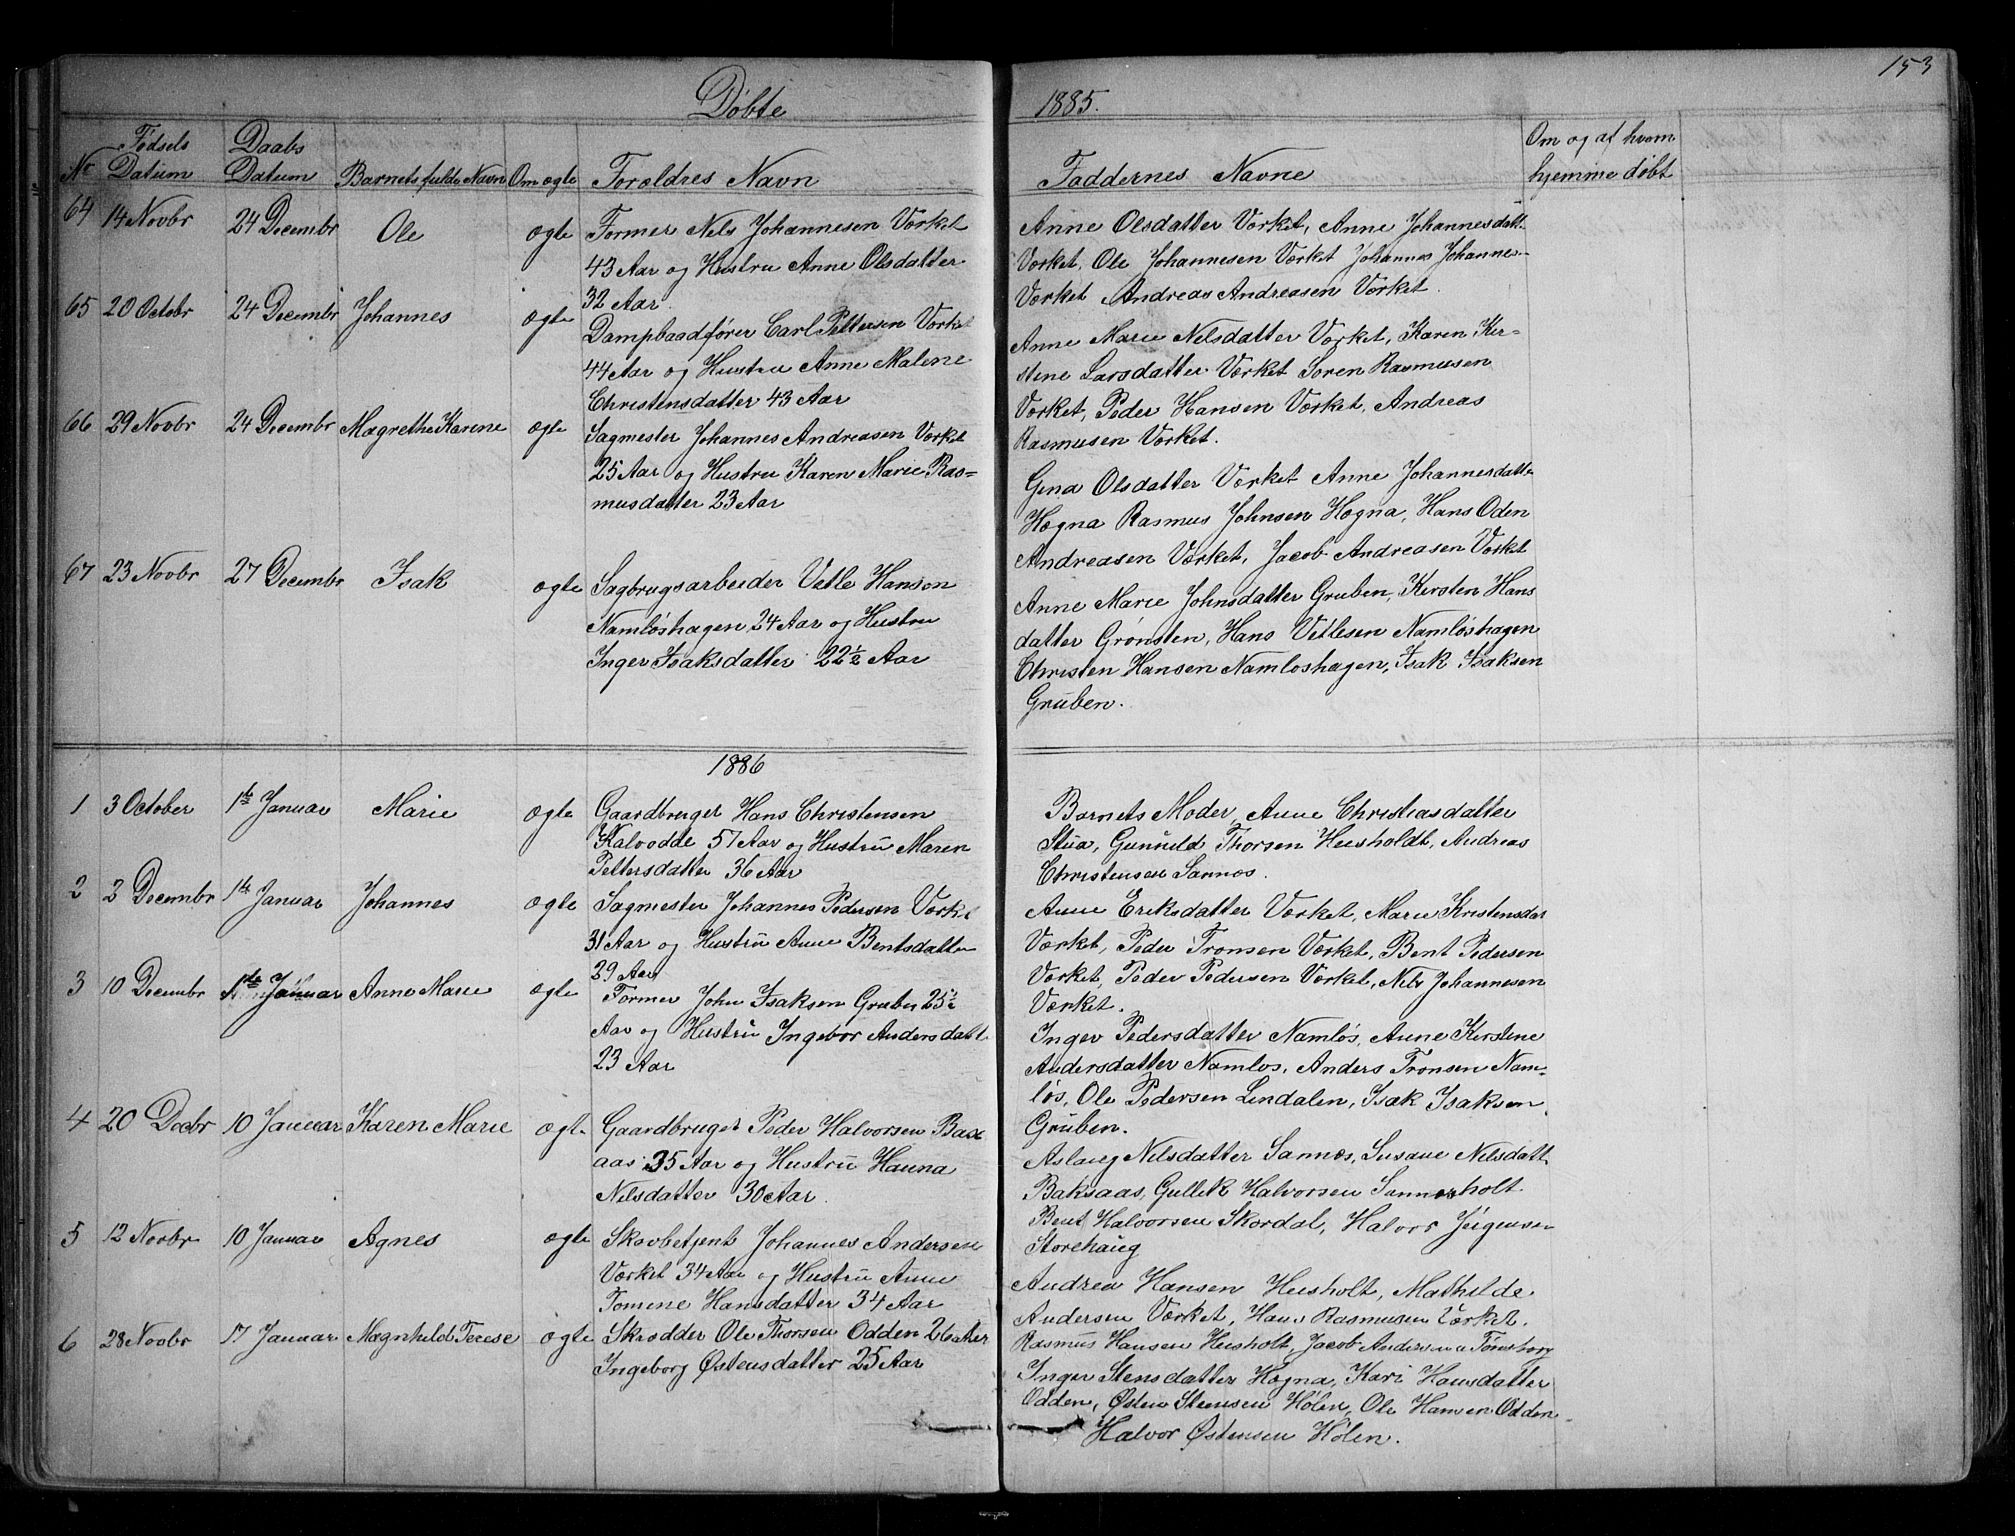 153
Døbte 1885.
Nr Fødsels Datum Daabs Datum Barnets fulde Navn Om ægte Forældres Navn Faddernes Navne Om og af hvem hjemme døbt
64 14 Novbr 24 Decembr Ole ægte Former Nels Johannesen Værket
43 Aar og Hustru Anne Olsdatter
32 Aar
Anne Olsdatter Værket, Anne Johannesdatt.
Værket, Ole Johannesen Værket Johannes Johannes-
Værket Andreas Andreasen Værket.
65 20 Octobr 24 Decembr Johannes ægte Dampbaadfører Carl Pettersen Værket
44 Aar og Hustru Anne Malene
Christensdatter 43 Aar
Anne Marie Nelsdatter Værket, Karen Ker-
stine Larsdatter Værket Søren Rasmusen
Værket, Peder Hansen Værket, Andreas
Rasmusen Værket.
66 29 Novbr 24 Decembr Magrethe Karene ægte Sagmester Johannes Andreasen Værket
25 Aar og Hustru Karen Marie Ras-
musdatter 23 Aar
Gena Olsdatter Værket Anne Johannesdatte
Høgna Rasmus Johnsen Høgna, Hans Oden
Andreasen Værket, Jacob Andreasen Værket
67 23 Novbr 27 Decembr Isak ægte Sagbrugsarbeider Vetle Hansen
Namløshagen 24 Aar og Hustru
Inger Isaksdatter 22½ Aar
Anne Marie Johnsdatter Gruben, Kersten Hans
datter Grønsten, Hans Vetlesen Namløshagen
Christen Hansen Namløshagen, Isak Isaksen
Gruben.
1886
1 3 October 1te Januar Marie ægte Gaardbruger Hans Christensen
Kalvodde 57 Aar og Hustru Maren
Pettersdatter 36 Aar
Barnets Moder, Anne Christiasdatter
Stua, Gunnild Thorsen Heisholdt, Andreas
Christensen Sannes.
2 2 Decembr 1te Januar Johannes ægte Sagmester Johannes Pedersen Værket
31 Aar og Hustru Anne Bentsdatter
29 Aar
Anne Eriksdatter Værket, Marie Kristensdat
Værket, Peder Tronsen Værket, Bent Pedersen
Værket, Peder Pedersen Værket, Nels Johannesen
Værket.
3 10 Decembr 1te Januar Anne Marie ægte Former John Isaksen Gruben 25½
Aar og Hustru Ingebor Andersdatt.
23 Aar
Inger Pedersdatter Namløs, Anne Kerstene
Andersdatter Namløs, Anders Tronsen Nam-
løs, Ole Pedersen Lindalen, Isak Isaksen
Gruben.
4 20 Decbr 10 Januar Karen Marie ægt. Gaardbruger Peder Halvorsen Bax
aas 35 Aar og Hustru Hanna
Nelsdatter 30 Aar.
Aslaug Nelsdatter Sannes, Susane Nelsdatt.
Baksaas, Gullek Halvorsen Sannesholt
Bent Halvorsen Skordal, Halvor Jørgensen
Storehaug
5 12 Novbr 10 Januar Agnes ægte Skovbetjent Johannes Andersen
Værket 34 Aar og Hustru Anne
Tomene Hansdatter 34 Aar
Andrea Hansen Heisholt, Mathilde
Andersen Værket, Hans Rasmusen Værket.
Rasmus Hansen Heisholt, Jacob Andersen Tønsberg
6 28 Novbr 17 Januar Magnhild Terese ægte Skrædder Ole Thorsen Odden 26 Aar
Ingeborg Østensdatter 25 Aar
Inger Stensdatter Høgna, Kari Hansdatter
Odden, Østen Steensen Holen, Ole Hansen Odden
Halvor Østensen Holen.